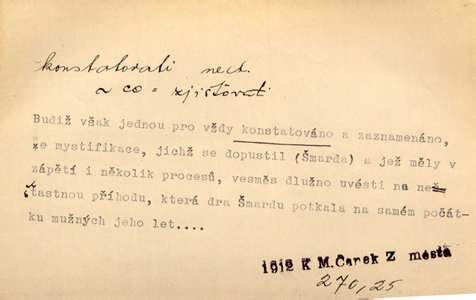 konstatovati ned.
~ co = zjišťovati
Budiž však jednou pro vždy konstatováno a zaznamenáno,
že mystifikace, jichž se dopustil (Šmarda) a jež měly v
zápětí i několik procesů, vesměs dlužno uvésti na neš
ťastnou příhodu, která dra Šmardu potkala na samém počát-
ku mužných jeho let....
1912 K M.Čapek Z města
270,25